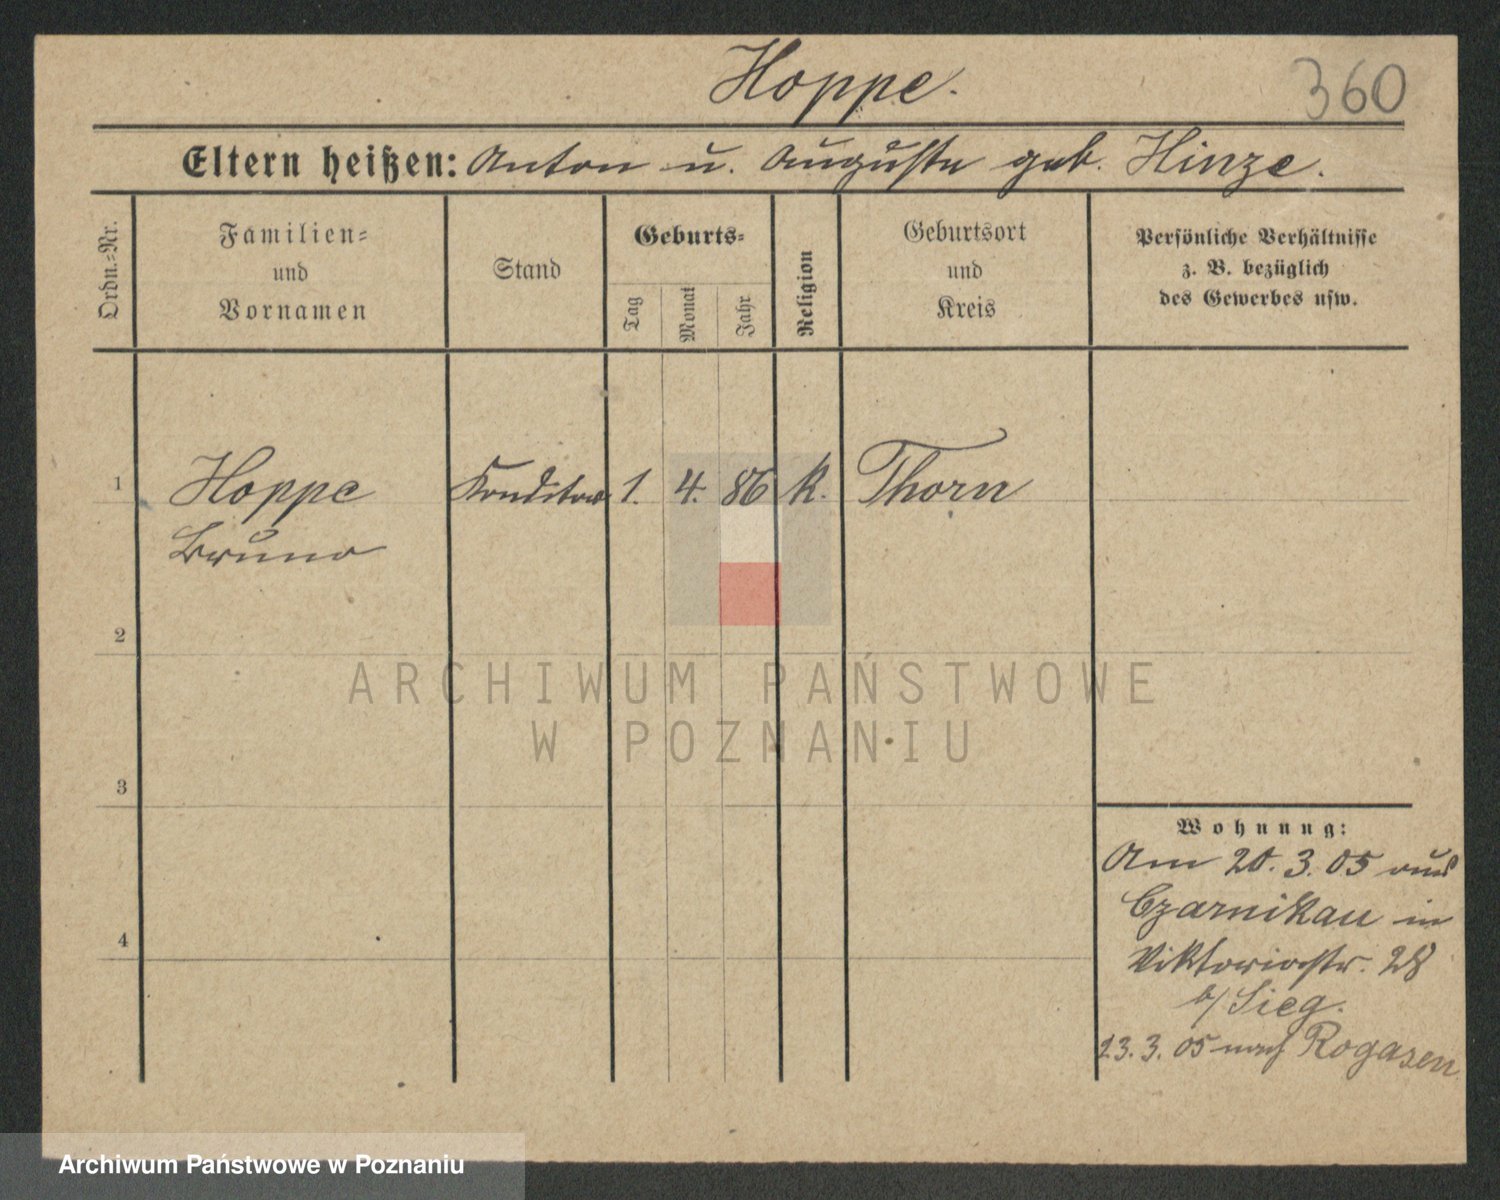 Hoppe.
360
Eltern heißen: Anton u. Auguste geb. Hinze.
Ordn.-Nr.
Familien-
und
Vornamen
Stand
Geburts-
Tag
Monat
Jahr
Religion
Geburtsort
und
Kreis
Persönliche Verhältnisse
z. B. bezüglich
des Gewerbes usw.
1
Hoppe Konditor 1. 4. 86 k. Thorn
Bruno
2
ARCHIWUM PAŃSTWOWE
W POZNANIU
3
Wohnung:
Am 20. 3. 05 aus
Czarnikau in
4
Viktoriastr. 28
b/ Sieg.
23. 3. 05 nach Rogasen
Archiwum Państwowe w Poznaniu